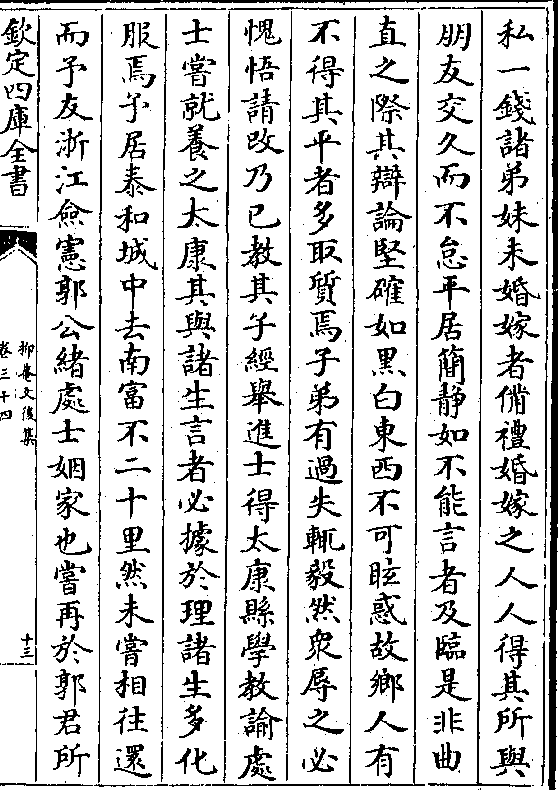 私一錢諸弟妹未婚嫁者備禮婚嫁之人人得其所與
朋友交久而不怠平居簡靜如不能言者及臨是非曲
直之際其辯論堅確如黑白東西不可眩惑故鄉人有
不得其平者多取質焉子弟有過失輒毅然衆辱之必
愧悟請改乃已教其子經舉進士得太康縣學教諭處
士嘗就養之太康其與諸生言者必據於理諸生多化
服焉予居泰和城中去南富不二十里然未嘗相往還
而予友浙江僉憲郭公緒處士姻家也嘗再於郭君所
欽定四庫全書
抑菴文後集
卷三十四
十三